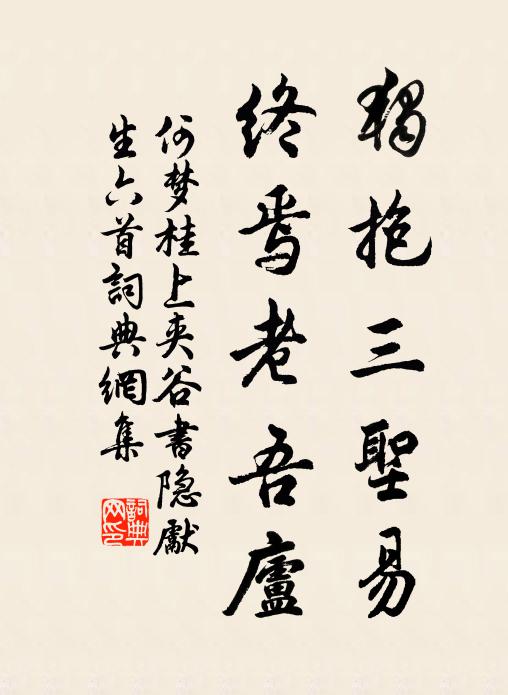 獨抱三聖易
終焉老吾廬
何梦桂上夾谷書隐獻
生六首詞典網集
詞典网印